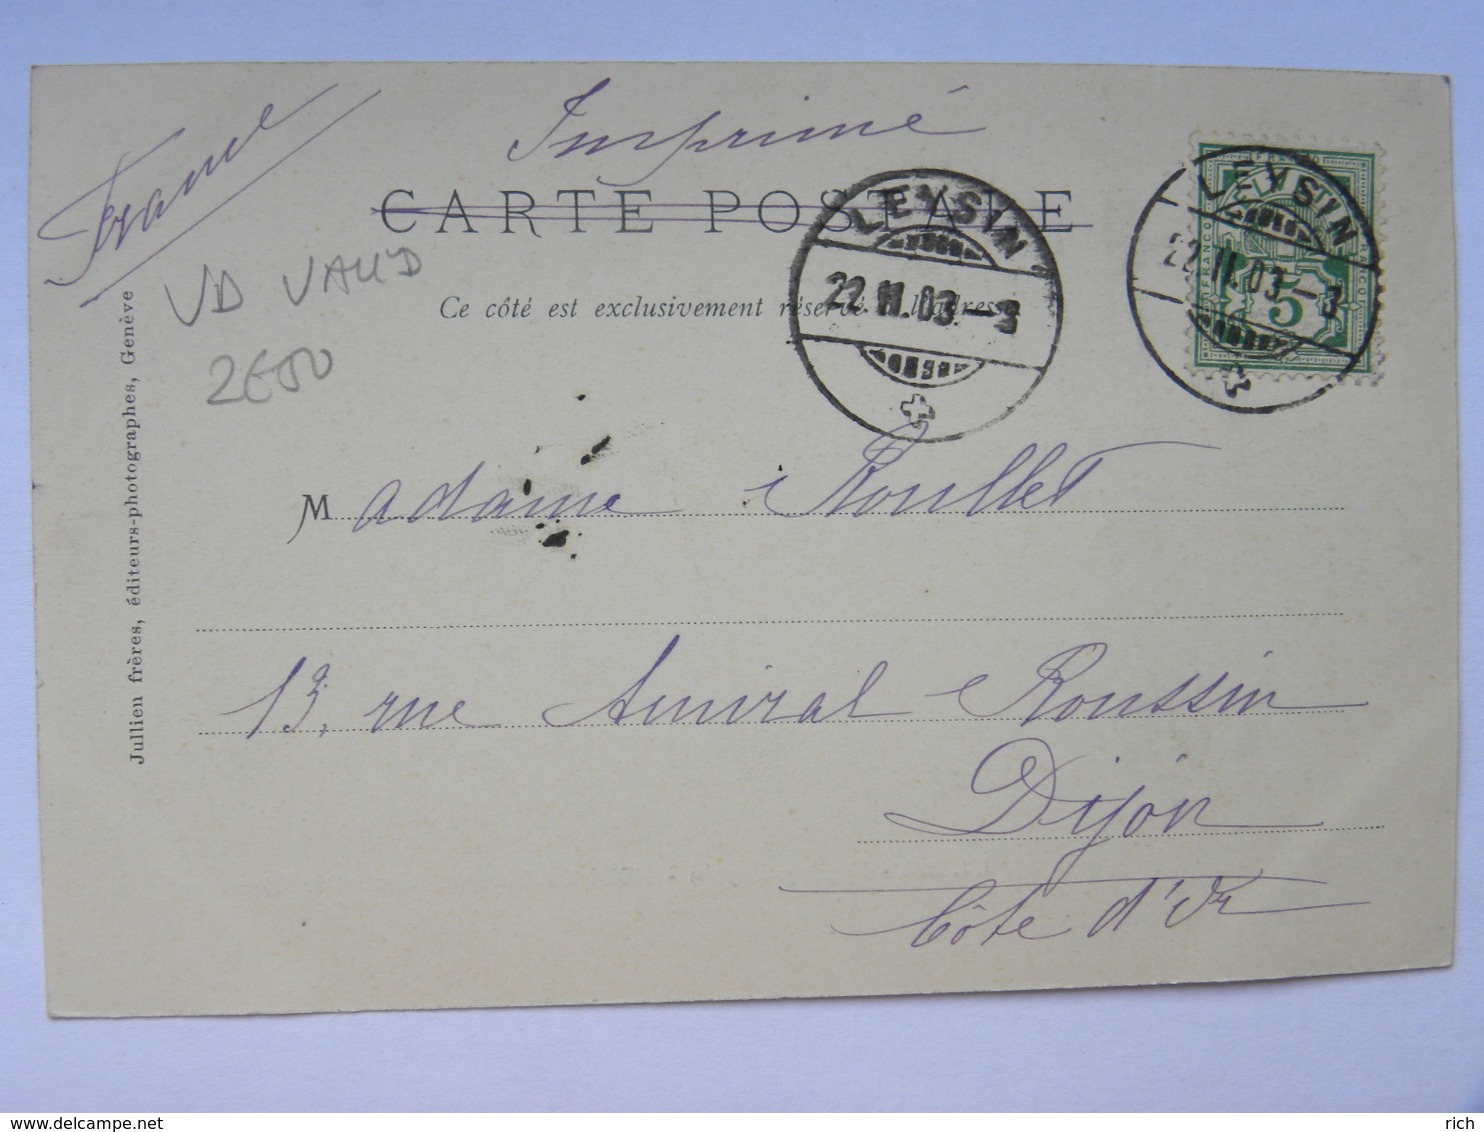 France
Imprimé
CARTE POSTALE
Ce côté est exclusivement réservé à l'adresse
LEYSIN
22.II.03-3
LEYSIN
22.II.03-3
FRANCO
5
VD VAUD
2E50
Julien frères, éditeurs-photographes, Genève
Madame Roullet
13, rue Amiral Roussin
Dijon
Côte d'Or
delcampe.net
rich